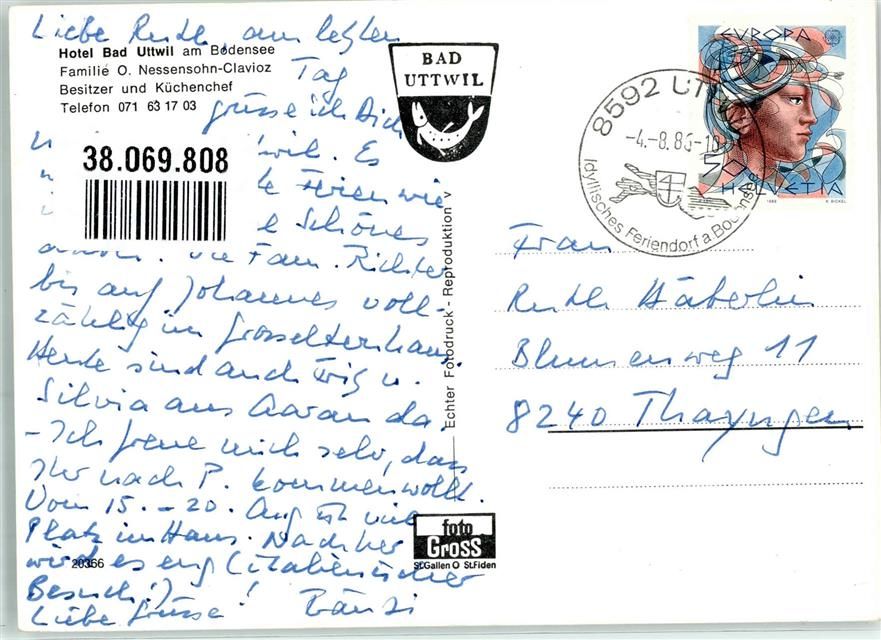 Liebe Ruth, am letzten
Hotel Bad Uttwil am Bodensee
Familie O. Nessensohn-Clavioz
Besitzer und Küchenchef
Telefon 071 63 17 03
Tag
grüsse ich Dich
38.069.808
wil. Es
Ferien wie
Schönes
die Fam. Richter
bis auf Johannes voll-
zählig im Grosselternhaus.
Heute sind auch u.
Silvia aus Aarau da.
- Ich freue mich sehr, dass
Ihr nach P. kommen wollt.
Vom 15. - 20. Aug ist viel
Platz im Haus. Nachher
wird es eng (italienischer
Besuch!)
Liebe Grüsse! Bänzi
20366
BAD
UTTWIL
Echter Fotodruck - Reproduktion v
foto
GROSS
St.Gallen O St.Fiden
8592 UT
-4.-8.86-1
Idyllisches Feriendorf a Bodensee
EUROPA
50
HELVETIA
1986
K. BICKEL
Frau
Ruth Häberlin
Blumenweg 11
8240 Thayngen